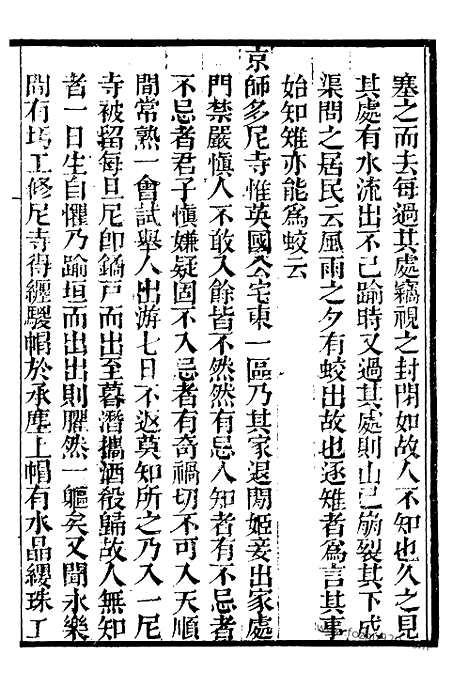 塞之而去每過其處竊視之封閉如故人不知也久之見
其處有水流出不已踰時又過其處則山已崩裂其下成
渠問之居民云風雨之夕有蛟出故也逐雉者爲言其事
始知雉亦能爲蛟云
京師多尼寺惟英國公宅東一區乃其家退閒姬妾出家處
門禁嚴愼人不敢入餘皆不然然有忌人知者有不忌者
不忌者君子愼嫌疑固不入忌者有奇禍切不可入天順
間常熟一會試舉人出游七日不返莫知所之乃入一尼
寺被留每旦尼卽鐍戸而出至暮潛攜酒殽歸故人無知
者一日生自懼乃踰垣而出出則臞然一軀矣又聞永樂
間有圬工修尼寺得纏騣帽於承塵上帽有水晶纓珠工